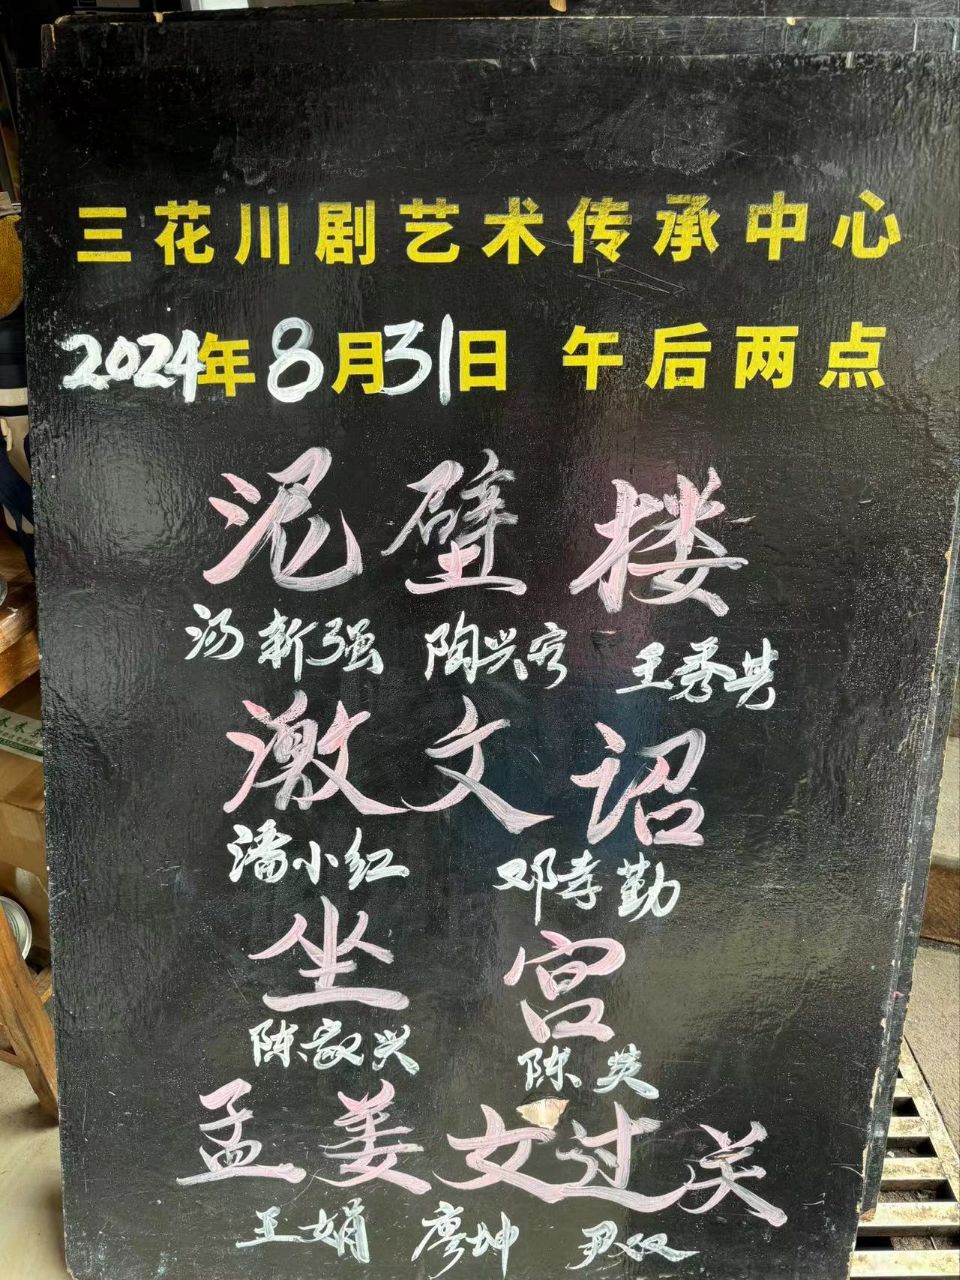 三花川剧艺术传承中心
2024年8月31日 午后两点
泥壁楼
汤新强 陶兴容 王秀其
激文诏
潘小红 邓孝勤
坐宫
陈家兴 陈英
孟姜女过关
王娟 廖坤 尹双